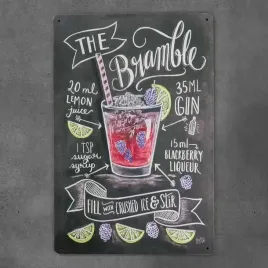 THE
Bramble
20 ml
LEMON
juice
35ML
GIN
1 TSP
sugar
syrup
15 ml
BLACKBERRY
LIQUEUR
FILL WITH CRUSHED ICE & STIR